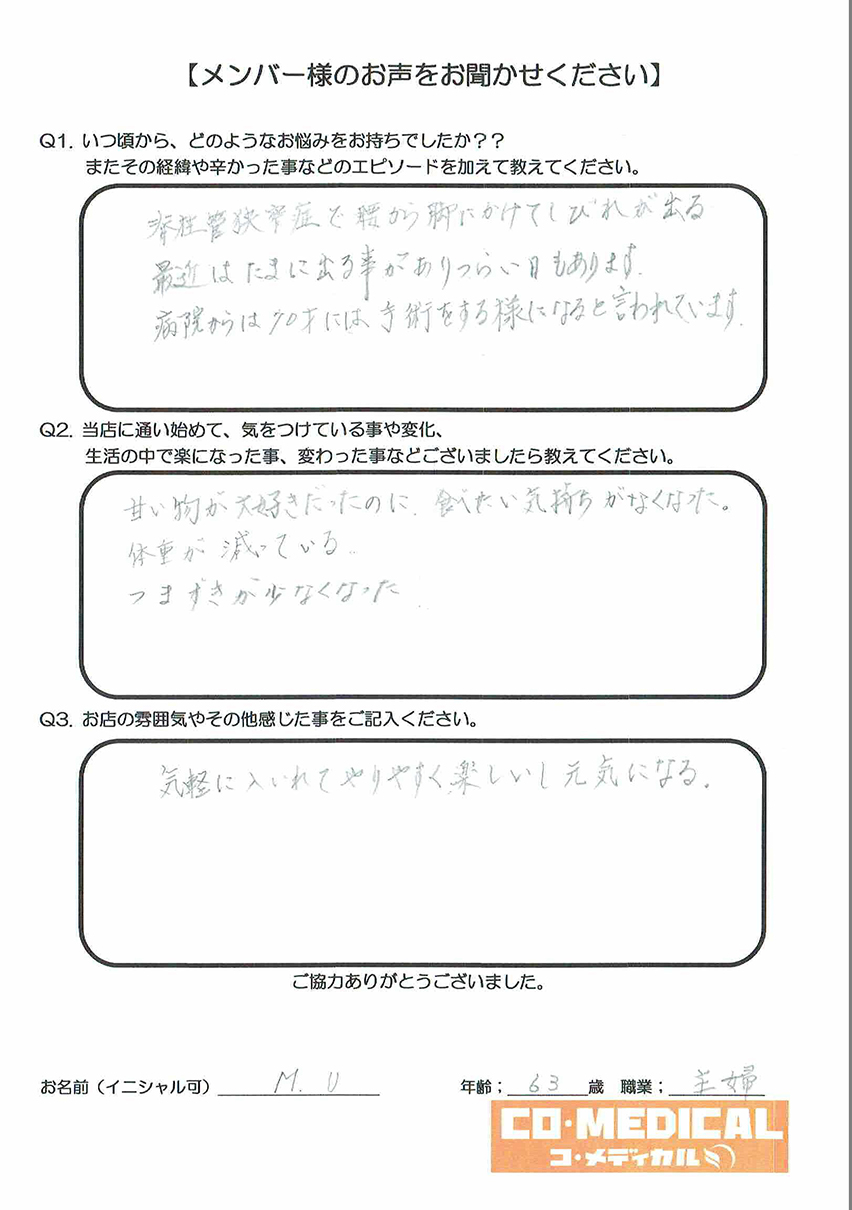 【メンバー様のお声をお聞かせください】
Q1. いつ頃から、どのようなお悩みをお持ちでしたか？？
またその経緯や辛かった事などのエピソードを加えて教えてください。
脊柱管狭窄症で腰から脚にかけてしびれが出る
最近はたまに出る事がありつらい日もあります.
病院からは70才には手術をする様になると言われています.
Q2. 当店に通い始めて、気をつけている事や変化、
生活の中で楽になった事、変わった事などございましたら教えてください。
甘い物が大好きだったのに、食べたい気持ちがなくなった。
体重が減っている.
つまずきが少なくなった.
Q3. お店の雰囲気やその他感じた事をご記入ください。
気軽に入いれてやりやすく楽しいし元気になる.
ご協力ありがとうございました。
お名前（イニシャル可） M. U 年齢； 63 歳 職業； 主婦
CO・MEDICAL
コ・メディカル